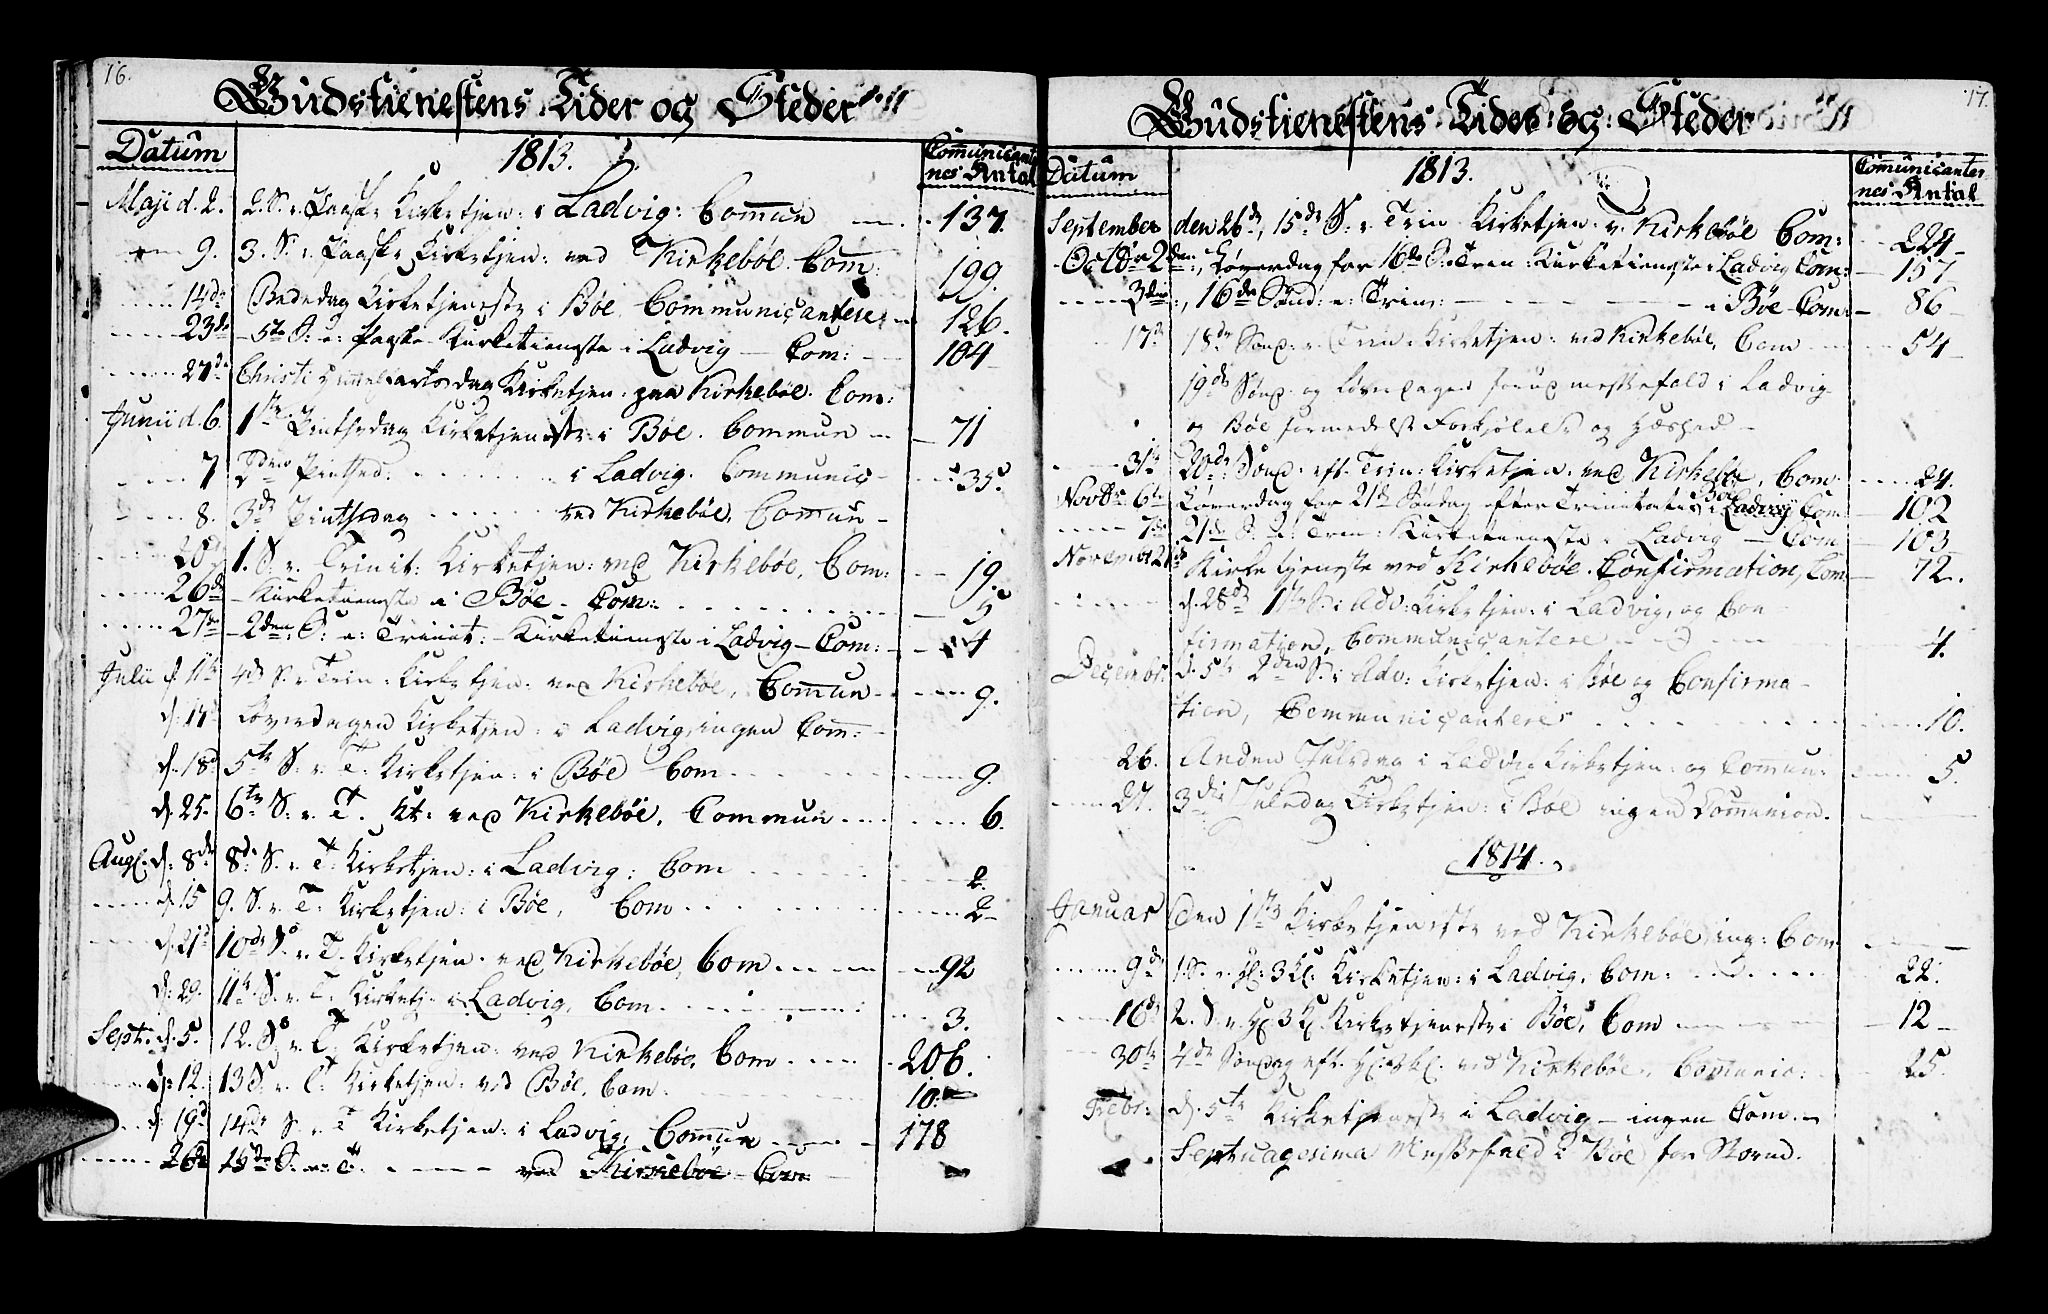 16.
Gudstienestens Tider og Steder
Datum
1813.
Communicanter-
nes Antal
Maji d. 2. 2. S. e. Paaske Kirketjen: i Ladvig: Commun 137.
9. 3. S. e. Paaske Kirketjen: ved Kirkebøe. Com: 199.
14de Bededag Kirketjeneste i Bøe Communicantere 126.
23de 5te S: e: Paaske Kirketieneste i Ladvig Com: 104
27de Christi Himmelfartsdag Kirketjen: paa Kirkebøe. Com:
Junii d. 6. 1ste Pintsedag Kirketjeneste i Bøe. Commun 71
7 2den Pintsed. i Ladvig. Communic 35.
8. 3de Pintsedag ved Kirkebøe. Commun
20de 1. S. e. Trinit: Kirketjen: ved Kirkebøe, Com: 19.
26de Kirketieneste i Bøe. Com: 5
27de 2den S: e: Trinit: Kirketieneste i Ladvig Com: 4
Julii d. 11te 4de S. e. Trin: Kirketjen: ved Kirkebøe, Commun 9.
d: 17 Løverdagen Kirketjen: i Ladvig, ingen Com:
d. 18de 5te S. e. T: Kirketjen: i Bøe Com 9.
d. 25. 6te S. e. T. Kt: ved Kirkebøe, Commun 6.
Augs. d: 8de 8de S. e. T: Kirketjen: i Ladvig: Com 2.
d. 15 9. S. e. T: Kirketjen: i Bøe, Com 2
d. 21d 10de S. e. T. Kirketjen. ved Kirkebøe, Com 92
d: 29. 11te S. e. T: Kirketj: i Ladvig, Com 3.
Septr. d: 5. 12. S. e. T. Kirketjen: ved Kirkebøe, Com 206.
d: 12. 13 S. e. T: Kirketjen: ved Bøe, Com 10.
d: 19d 14de S. e. T Kirketjen: i Ladvig, Commun 178
26de 15de S. e. T. ved Kirkebøe Com:
17.
Gudstienestens Tider og Steder
Datum
1813.
Communicanter-
nes Antal
September den 26de, 15de S. e. Trin Kirketjen: v. Kirkebøe Com: 224
Octbr 2den, Løverdag før 16de S: e: Trin: Kirketieneste i Ladvig Com: 157
3die, 16de Sönd: e: Trin: i Bøe Com: 86
17de 18de Sönd: e. Trin: Kirketjen: ved Kirkebøe, Com 54
19de Sönd. og Løverdagen forud messefald i Ladvig
og Bøe formedelst Forkjølelse og Hæshed
31te 20de Sönd: eft. Trin: Kirketjen: ved Kirkebøe, Com 24.
Novbr. 6te Løverdag før 21de Søndag efter Trinitatis i Ladvig Bøe Com 102
7de 21de S: e: Trin: Kirketieneste i Ladvig Com 103
November 21de Kirketjeneste ved Kirkebøe. Confirmation, Com 72.
d. 28de 1ste S. i Adv: Kirketjen: i Ladvig, og Con-
firmation, Communicantere 4.
Decembr: d. 5te 2den S. i Adv: Kirketjen: i Bøe og Confirma-
tion, Communicanteres 10.
26. Anden Juledag i Ladvig Kirketjen: og Commun: 5.
27. 3die Juledag Kirketjen: i Bøe ingen Communion.
1814.
Januar den 1ste Kirketjeneste ved Kirkebøe, ing: Com
9de 1 S. e. Hl: 3 Kl: Kirketjen: i Ladvig, Com: 22.
16de 2. S. e. Hl. 3 Kl. Kirketjeneste i Bøe, Com 12
30te 4de Søndag eft. Hl. 3 Kl. ved Kirkebøe, Communic: 25.
Febr: d. 5te Kirketjeneste i Ladvig ingen Com.
Septuagesima Messefald i Bøe for Storm.